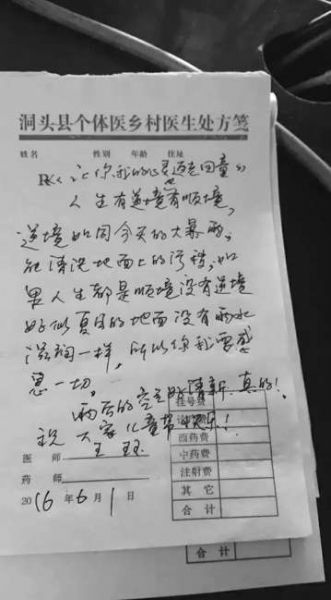 洞头县个体医乡村医生处方笺
姓名 性别 年龄 住址
R 《让你我的心灵返老回童》
人生有逆境也有顺境,
逆境如同今天的大暴雨,
能清洗地面上的污秽,如
果人生都是顺境没有逆境
好似夏日的地面没有雨水
滋润一样,所以你我要感
恩一切。
雨后的空气就清新,真的!
祝大家儿童节快乐!
挂号费
西药费
医师 中药费
药师 注射费
2016年6月1日 其它
合计
合计